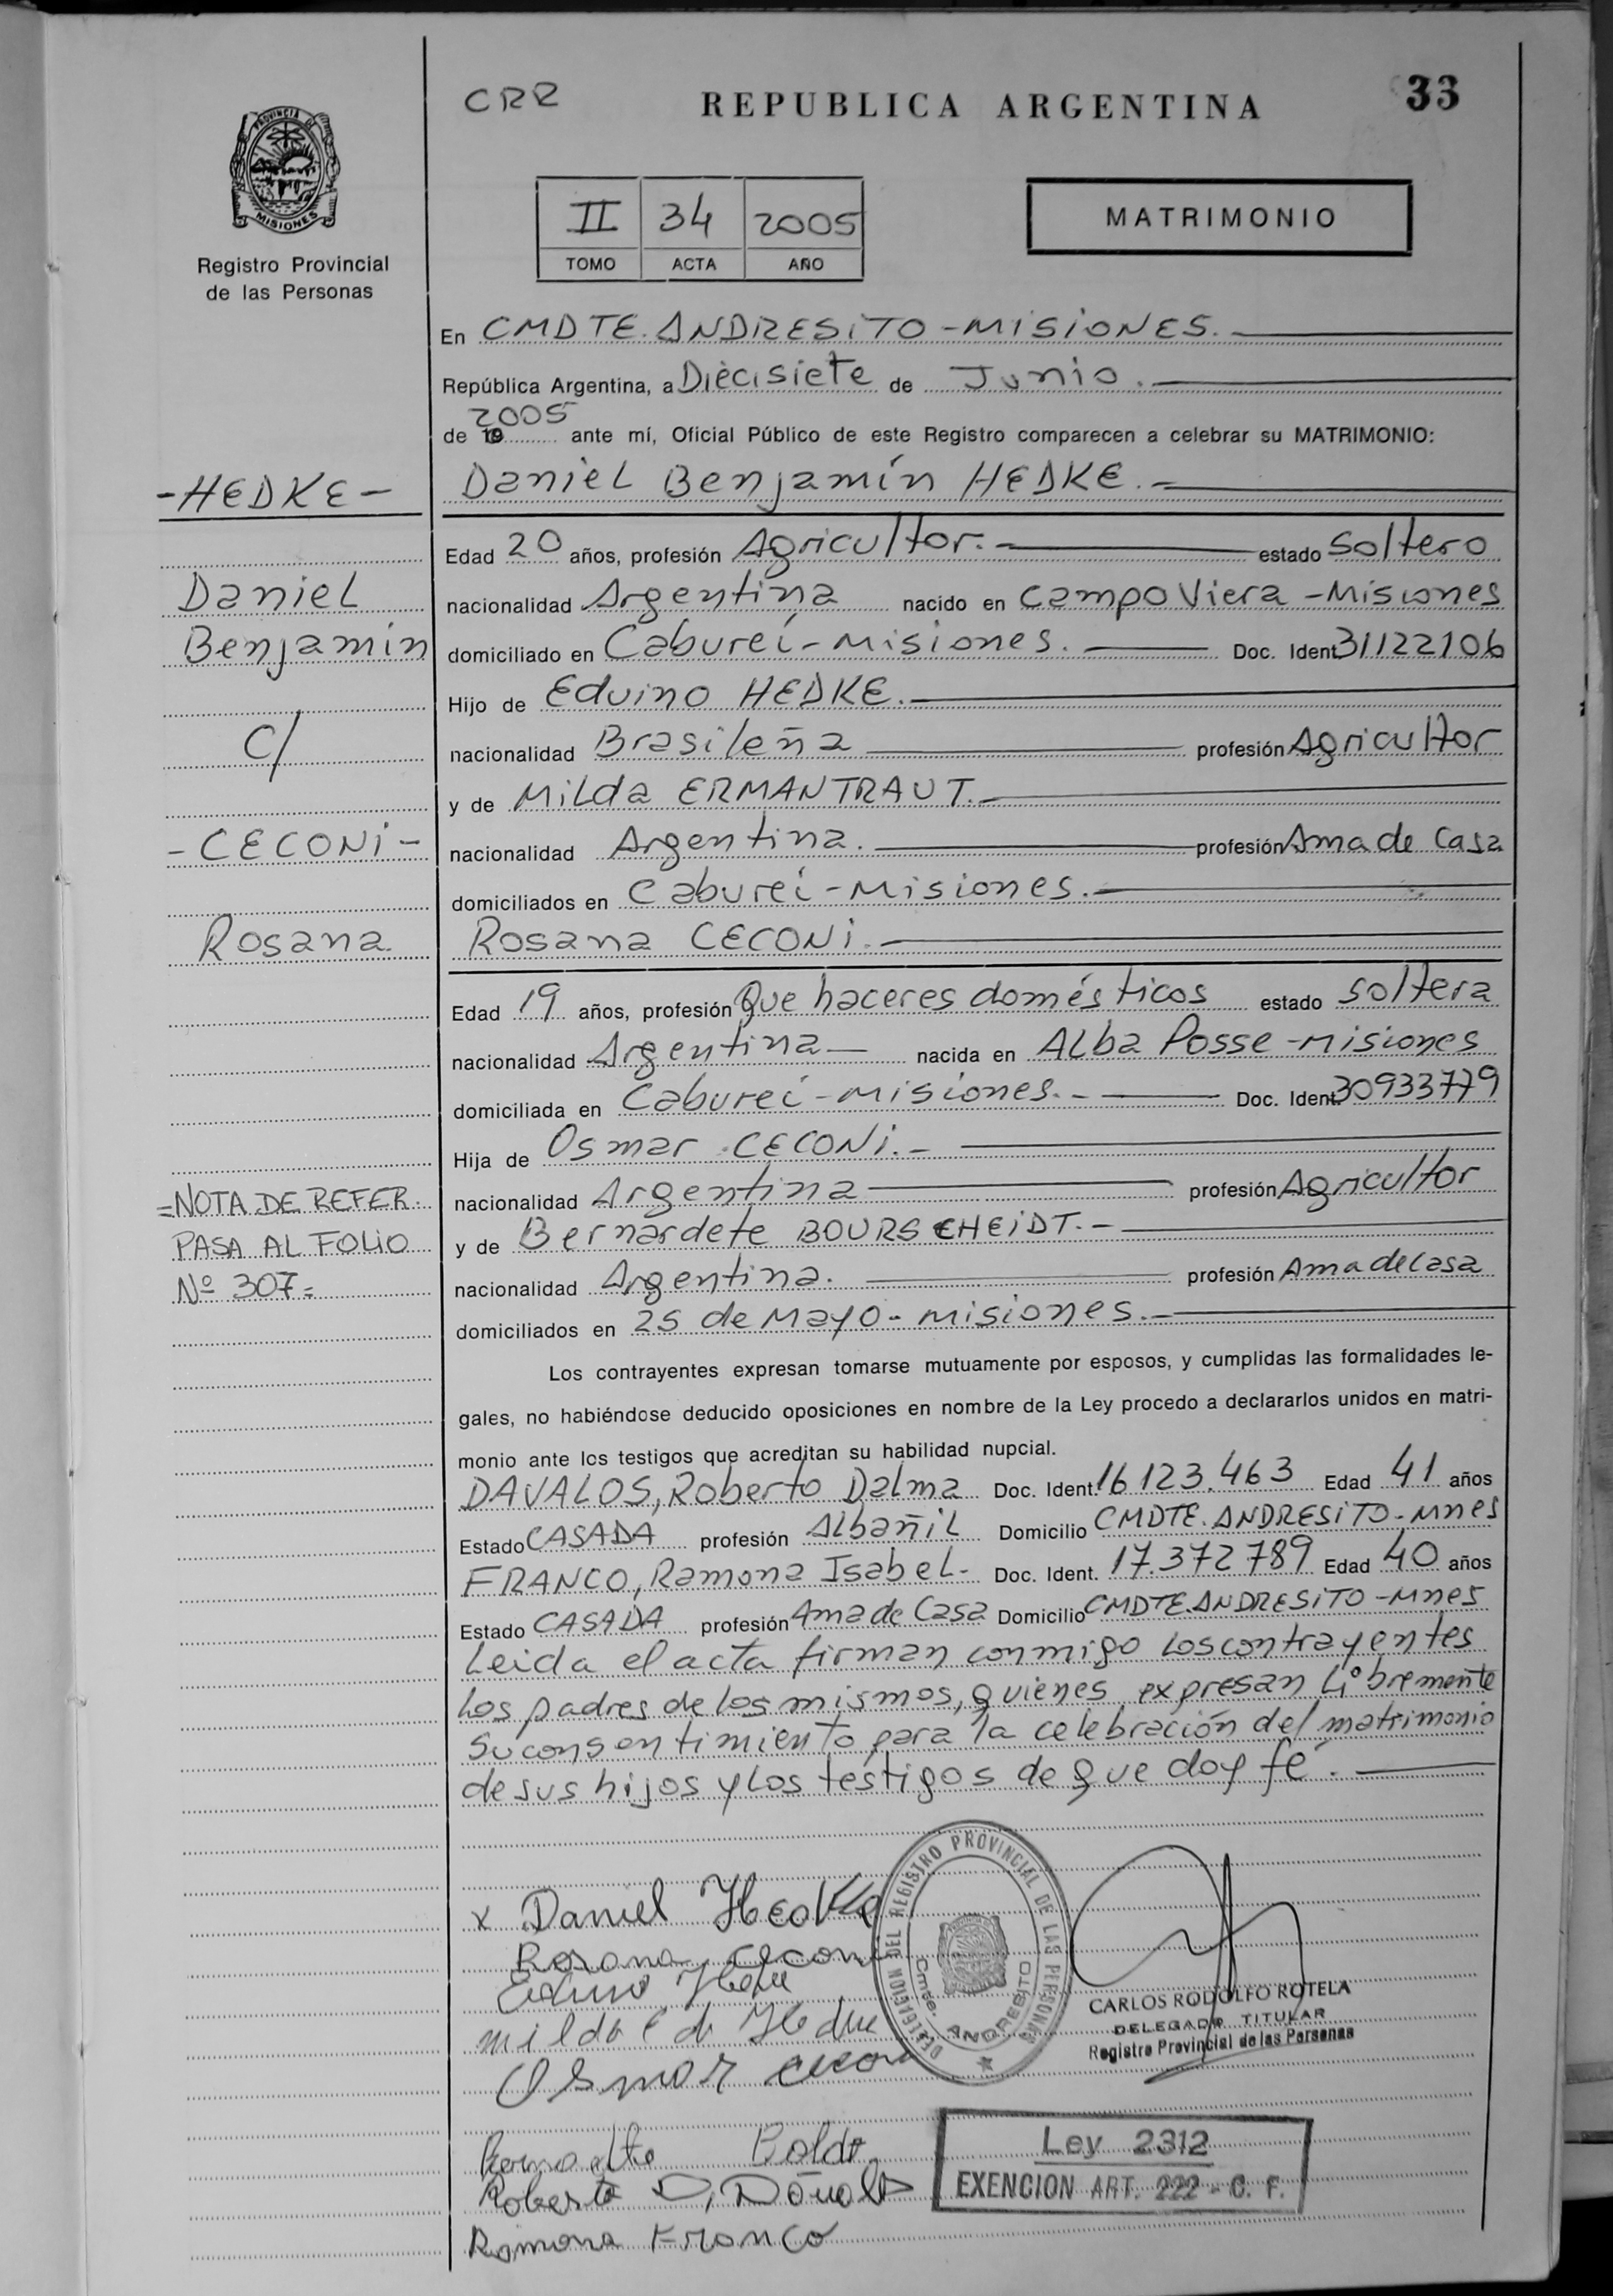 CRR
REPUBLICA ARGENTINA
33
PROVINCIA DE
MISIONES
Registro Provincial
de las Personas
II 34 2005
TOMO ACTA AÑO
MATRIMONIO
En CMDTE. ANDRESITO - MISIONES.
República Argentina, a Diecisiete de Junio.
de 19 2005 ante mí, Oficial Público de este Registro comparecen a celebrar su MATRIMONIO:
- HEDKE -
Daniel Benjamín HEDKE.-
Edad 20 años, profesión Agricultor.- estado Soltero
Daniel
nacionalidad Argentina nacido en Campo Viera - Misiones
Benjamín
domiciliado en Cabureí - Misiones. Doc. Ident 31122106
Hijo de Eduino HEDKE.
C/
nacionalidad Brasileña profesión Agricultor
y de Milda ERMANTRAUT.-
- CECONI -
nacionalidad Argentina. profesión Ama de Casa
domiciliados en Cabureí - Misiones.-
Rosana
Rosana CECONI.-
Edad 19 años, profesión Que haceres domésticos estado Soltera
nacionalidad Argentina nacida en Alba Posse - Misiones
domiciliada en Cabureí - Misiones.- Doc. Ident. 30933779
Hija de Osmar CECONI.-
=NOTA DE REFER.
nacionalidad Argentina profesión Agricultor
PASA AL FOLIO
y de Bernardete BOURSCHEIDT.-
Nº 307=
nacionalidad Argentina. profesión Ama de Casa
domiciliados en 25 de Mayo - Misiones.-
Los contrayentes expresan tomarse mutuamente por esposos, y cumplidas las formalidades le-
gales, no habiéndose deducido oposiciones en nombre de la Ley procedo a declararlos unidos en matri-
monio ante los testigos que acreditan su habilidad nupcial.
DAVALOS, Roberto Dalma Doc. Ident. 16123.463 Edad 41 años
Estado CASADA profesión Albañil Domicilio CMDTE. ANDRESITO - Mnes
FRANCO, Ramona Isabel- Doc. Ident. 17.372789 Edad 40 años
Estado CASADA profesión Ama de Casa Domicilio CMDTE. ANDRESITO - Mnes
Leida el acta firman conmigo los contrayentes
Los padres de los mismos, quienes expresan Libremente
su consentimiento para la celebración del matrimonio
de sus hijos y los testigos de que doy fé.
x Daniel Hedke
Rosana Ceconi
Eduino Hedke
milda E de Hedke
Osmar Ceconi
Roberto D. 
Ramona Franco
DELEGACION DEL REGISTRO PROVINCIAL DE LAS PERSONAS
Cmte. ANDRESITO
CARLOS RODOLFO ROTELA
DELEGADO TITULAR
Registro Provincial de las Personas
Ley 2312
EXENCION ART. 222 - C. F.